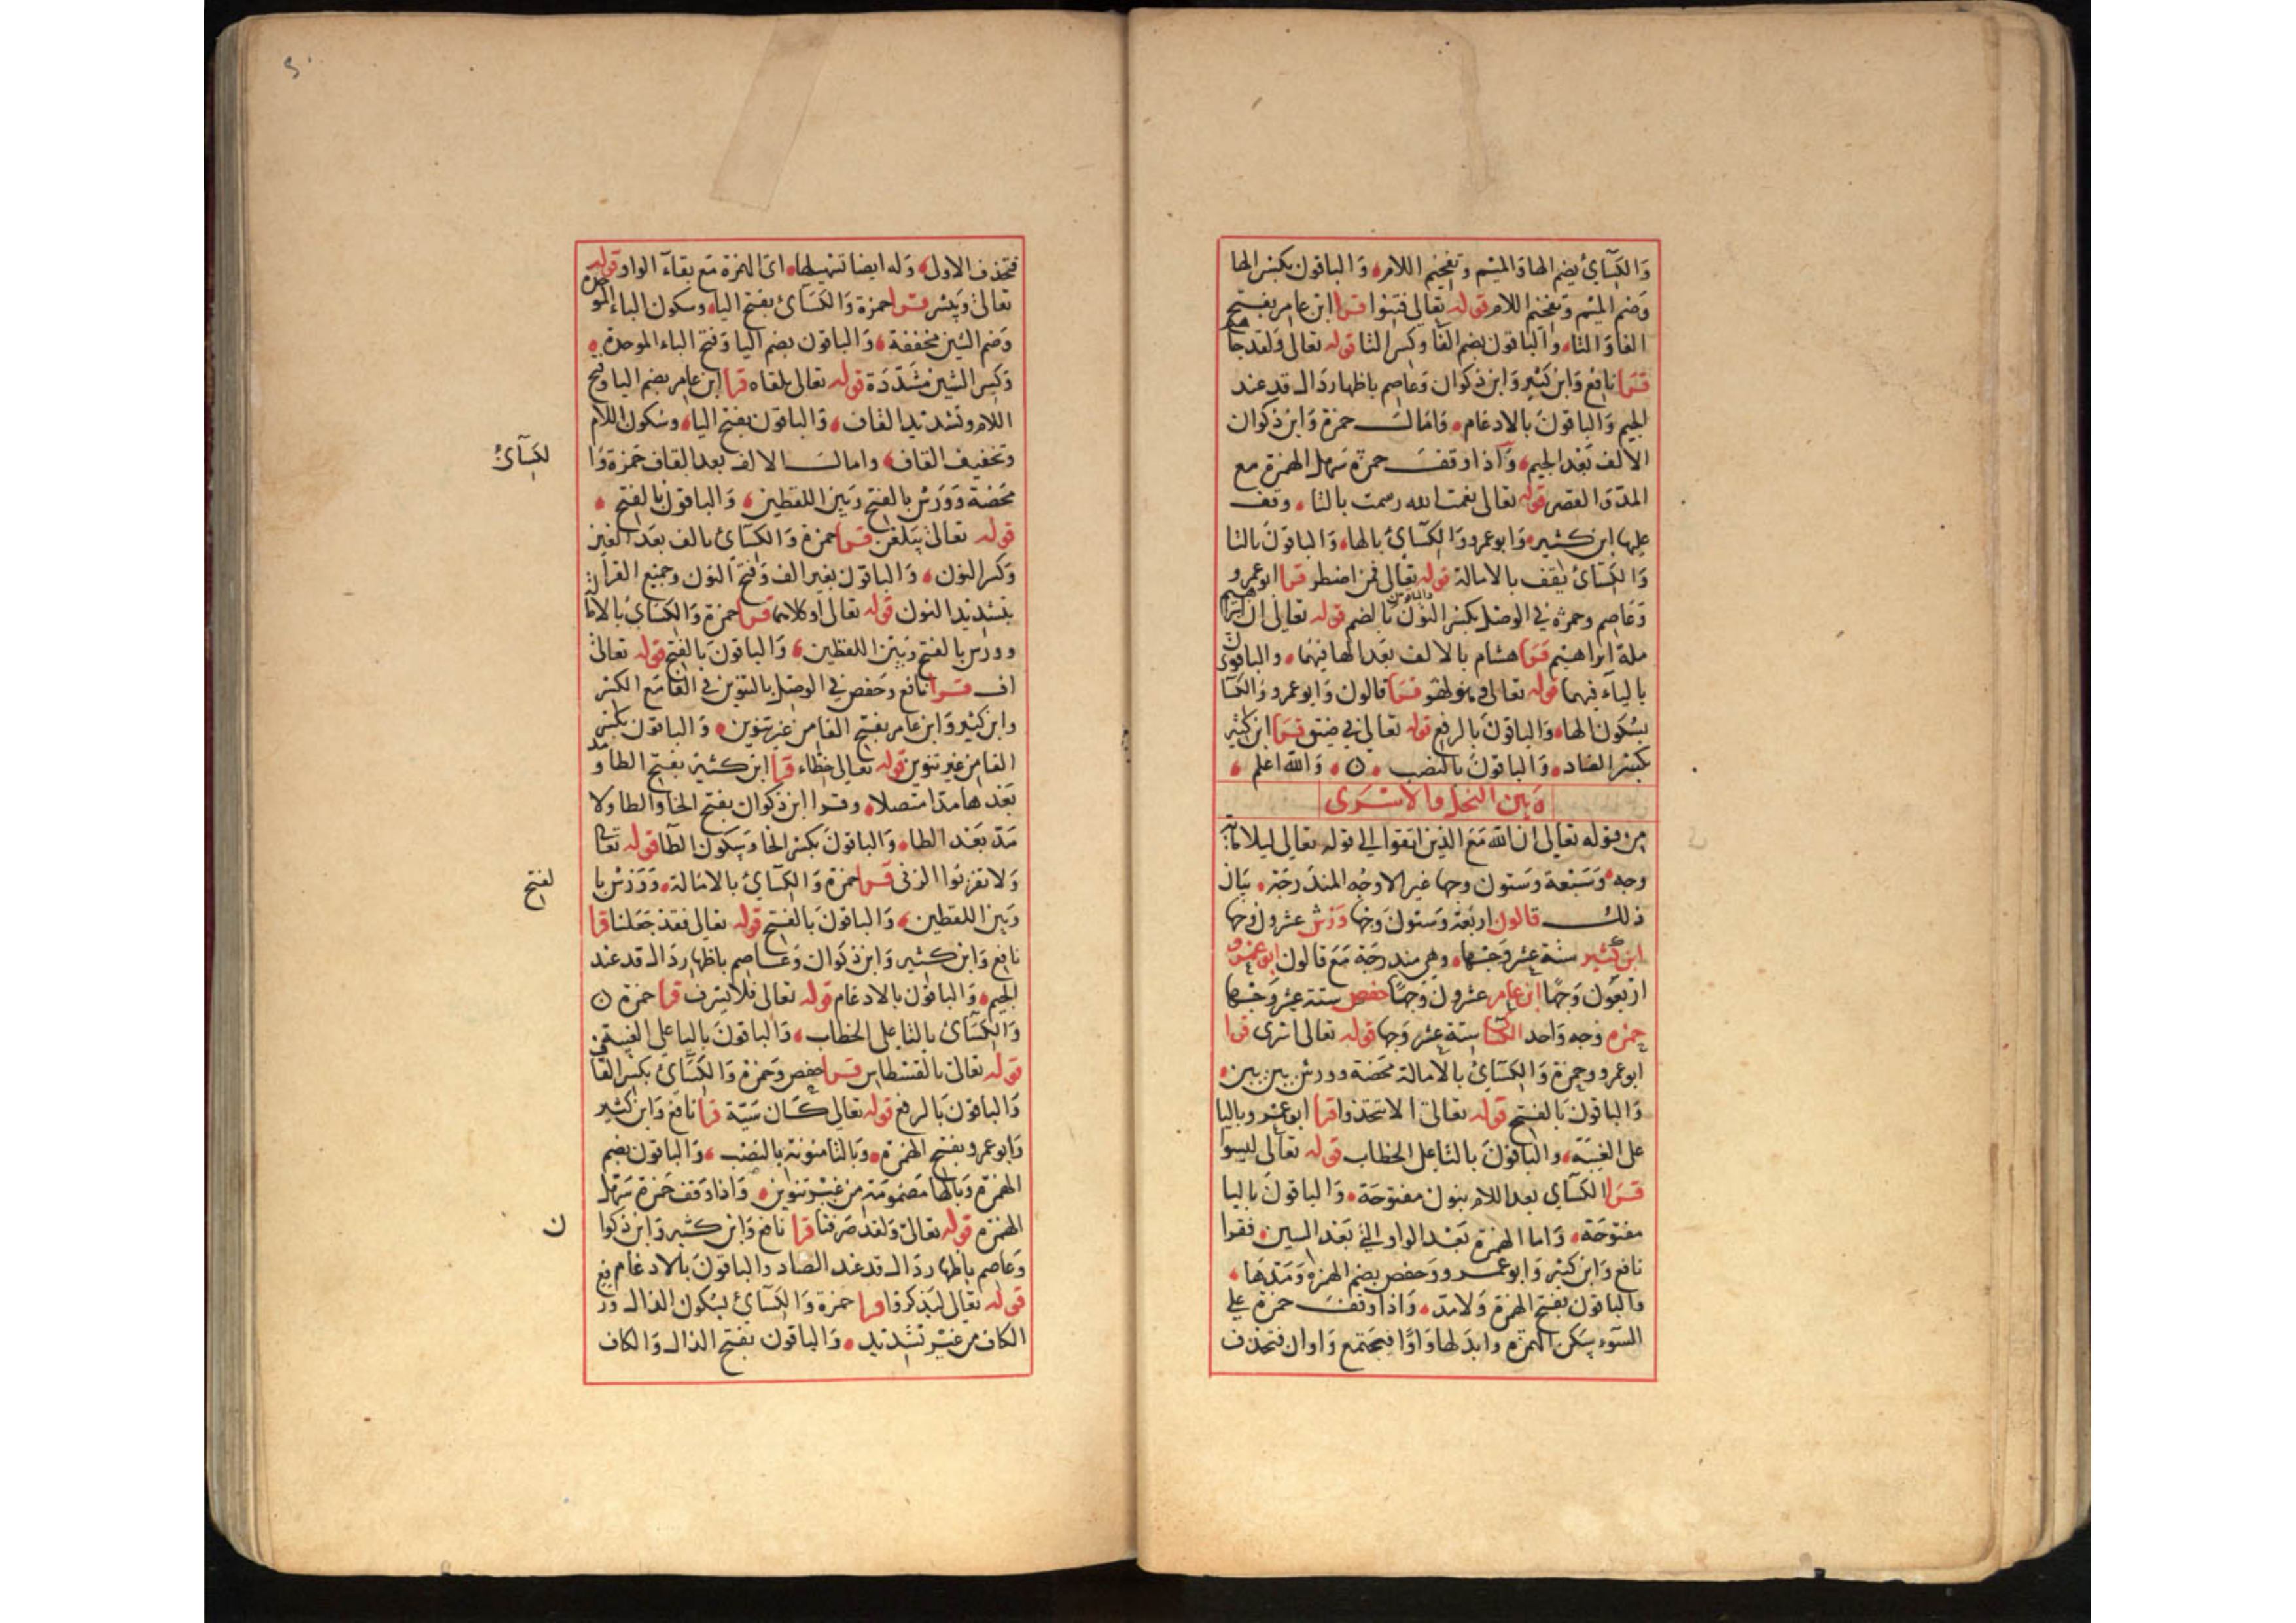 وَالكِسَآئ بضم الها وَالميم وتفخيم اللام، وَالباقون بكسر الها
وَضم الميم وتفخيم اللام قوله تعالى فتنوا قرا ابن عامر بفتح
الفا وَالتا، وَالباقون بضم الفا وكسر التا قوله تعالى وَلقد جاهم
قرا نافع وَابن كثير وَابن ذكوان وَعاصم باظهار دَال قد عند
الجيم وَالباقون بالادغام، وَامال حمزة وَابن ذكوان
الالف بَعْد الجيم، وَاذا وقف حمزة سَهل الهمزة مع
المدّ وَالقصر قوله تعالى نعمت الله رسمت بالتا، وقف
عليها ابن كثير وَابو عمرو وَالكسآئ بالها، وَالباقون بالتا
وَالكسآئ يقف بالامالة قوله تعالى فمن اضطر قرا ابو عمرو
وَعاصم وحمزة في الوصل بكسر النون والباقون بالضم قوله تعالى ان ابراهيم
ملة ابراهيم قرا هشام بالالف بعد الها فيهما، والباقون
بالياء فيهما قوله تعالى وهو قرا قالون وَابو عمرو وَالكسآ
بسُكون الها، وَالباقون بالرفع قوله تعالى في ضيق قرا ابن كثير
بكسر الضاد، وَالباقون بالنصب، ن، وَالله اعلم،
وَبين النحل والاسْرَى
من قوله تعالى ان الله مَعَ الذين اتقوا الى قوله تعالى ليلا مائة
وجه وَسَبْعة وَستون وجها غير الاوجه المندرجة، بَيَان
ذلك قالون اربعة وَستون وَجها وَرش عشرون وجها
ابن كثير ستة عشر وَجها، وهي مندرجة مَعَ قالون ابو عمرو
اربَعُون وَجهًا ابن عامر عشرون وَجهًا حفص ستة عشر وَجها
حمزه وَجه وَاحد الكسا ستة عشر وَجها قوله تعالى اسرى قرا
ابو عمرو وحمزة وَالكسَآئ بالامالة محضة وورش بين بين،
وَالباقون بَالفتح قوله تعالى الا تتخذوا قرا ابو عمرو وباليا
على الغيبة، والباقون بالتا على الخطاب قوله تعالى ليسوا
قرَا الكسآي بعد اللام بنون مفتوحَة، وَالباقون باليا
مفتوحَة، وَاما الهمزة بَعْد الواو التي بَعْد السين، فقرا
نافع وَابن كثير وَابو عمرو وَحفص بضم الهمزه وَمَدها،
وَالباقون بفتح الهمزة وَلا مدّ، وَاذا وقف حمزة على
السّوء سَكن الهمزه وابدَلها وَاوًا فيجتمع وَاوان فتحذف
فتحذف الاول، وَله ايضا تسهيلها، اى الهمزة مَع بقآء الواو قوله
تعالى وَيبشر قرا حمزة وَالكسآئ بفتح اليا، وسكون الباء الموحدة
وَضم الشين مخففة، وَالباقون بضم اليا وَفتح الباء الموحدة،
وَكسر الشين مشَدّدَة قوله تعالى يلقاه قرا ابن عامر بضم اليا وفتح
اللام وتشديد القاف، وَالباقون بفتح اليا، وسكون اللام
وتخفيف القاف، وامال الالف بعد القاف حمزة وَا لكسَآئ
مَحضة وَوَرش بالفتح وَبَين اللفظين، وَالباقون بالفتح،
قوله تعالى يبلغن قرا حمزة وَالكسآئ بالف بَعْد الغين
وَكسر النون، وَالباقون بغير الف وَفتح النون وجميع القرا
بتشديد النون قوله تعالى او كلاهما قرا حمزة وَالكسَائ بالامالة
وورش بالفتح وَبَين اللفظين، وَالباقون بَالفتح قوله تعالى
اف قرا نافع وَحفص في الوصل بالتنوين في الفا مَع الكسر
وابن كثير وَابن عامر بفتح الفا من غير تنوين، وَالباقون بكسر
الفا من غير تنوين قوله تعالى خطاء قرا ابن كثير بفتح الطا ومد
بَعْدها مدا متصلا، وقرا ابن ذكوان بفتح الخا وَالطا وَلا
مَدّ بَعْد الطا، وَالباقون بكسر الخا وَسكون الطا قوله تعالى
وَلا تقربوا الزنى قرا حمزة وَالكسآئ بالامالة، وَوَرش با لفتح
وَبَين اللفظين، وَالباقون بَالفتح قوله تعالى فقد جَعَلنا قرا
نافع وَابن كثير وَابن ذكوان وَعاصم باظهار دَال قد عند
الجيم، وَالباقون بالادغام قوله تعالى فلا يسرف قرا حمزة ن
وَالكسَآئ بالتا على الخطاب، وَالباقون باليا على الغيبة
قوله تعالى بالقسطاس قرا حفص وَحمزة وَالكسَآئ بكسر القاف
وَالباقون بالرفع قوله تعالى كان سَيّة قرا نافع وَابن كثير
وَابو عمرو بفتح الهمزة، وَبالتا منونة بالنصب، وَالباقون بضم
الهمزة وَبالها مَضمومَة من غير تنوين، وَاذا وَقف حَمزة سَهّل
الهمزة قوله تعالى وَلقد صَرفنا قرا نافع وَابن كثير وَابن ذكوا ن
وَعاصم باظهار دَال قد عند الصَاد وَالباقون بالادغام فيه
قوله تعالى ليَذكروا قرا حمزة وَالكسآئ بسُكون الذال ورفع
الكاف من غير تشديد، وَالباقون بفتح الذال وَالكاف